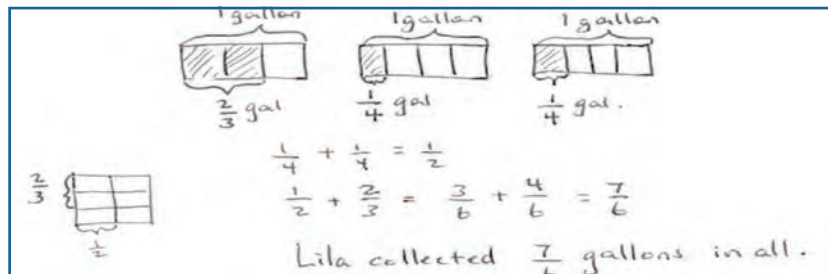 1 gallon 1 gallon 1 gallon
2/3 gal 1/4 gal 1/4 gal.
1/4 + 1/4 = 1/2
2/3 1/2 + 2/3 = 3/6 + 4/6 = 7/6
1/2
Lila collected 7/6 gallons in all.